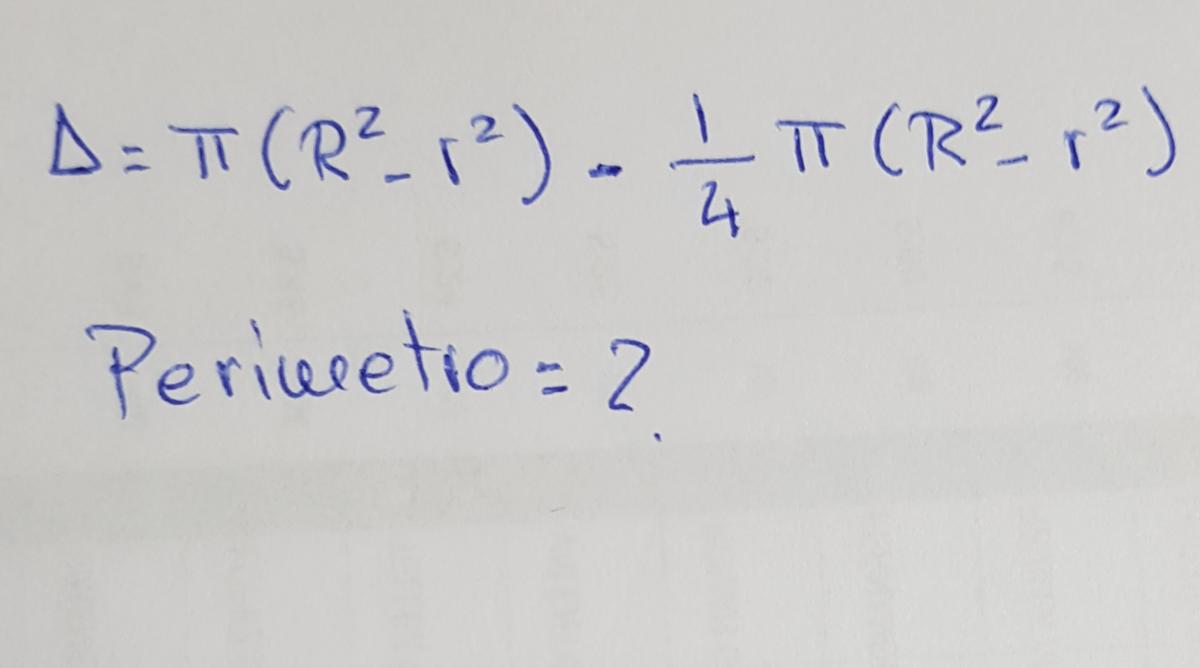 Δ = π (R² - r²) - 1/4 π (R² - r²)
Perimetro = ?